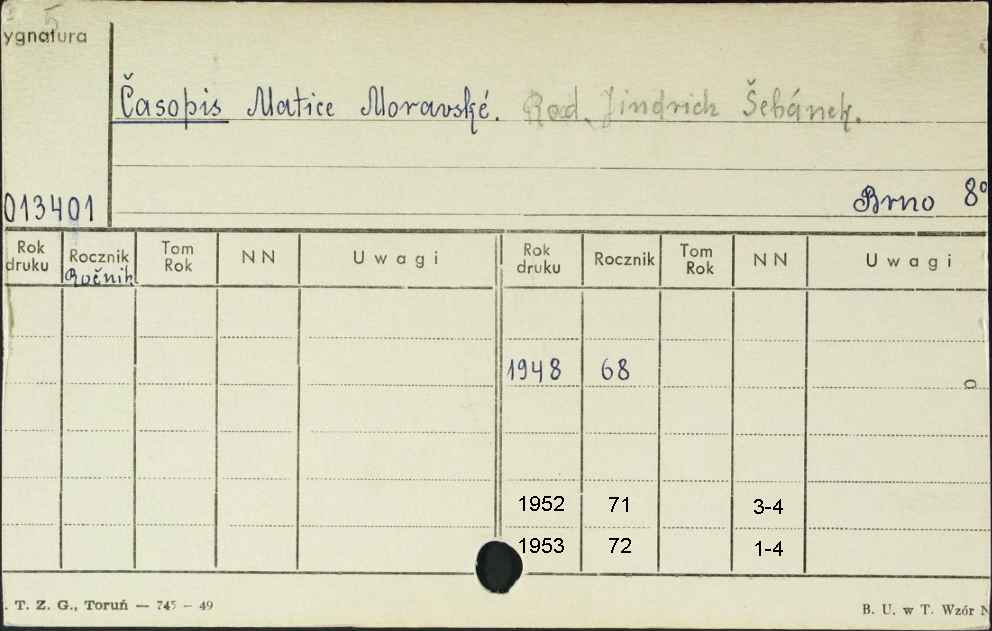 5
ygnatura
Časopis Matice Moravské. Red. Jindrich Šebánek.
013401
Brno 8°
Rok druku Rocznik Tom Rok NN Uwagi Rok druku Rocznik Tom Rok NN Uwagi
Ročnik
1948 68
1952 71 3-4
1953 72 1-4
. T. Z. G., Toruń — 745 – 49
B. U. w T. Wzór N